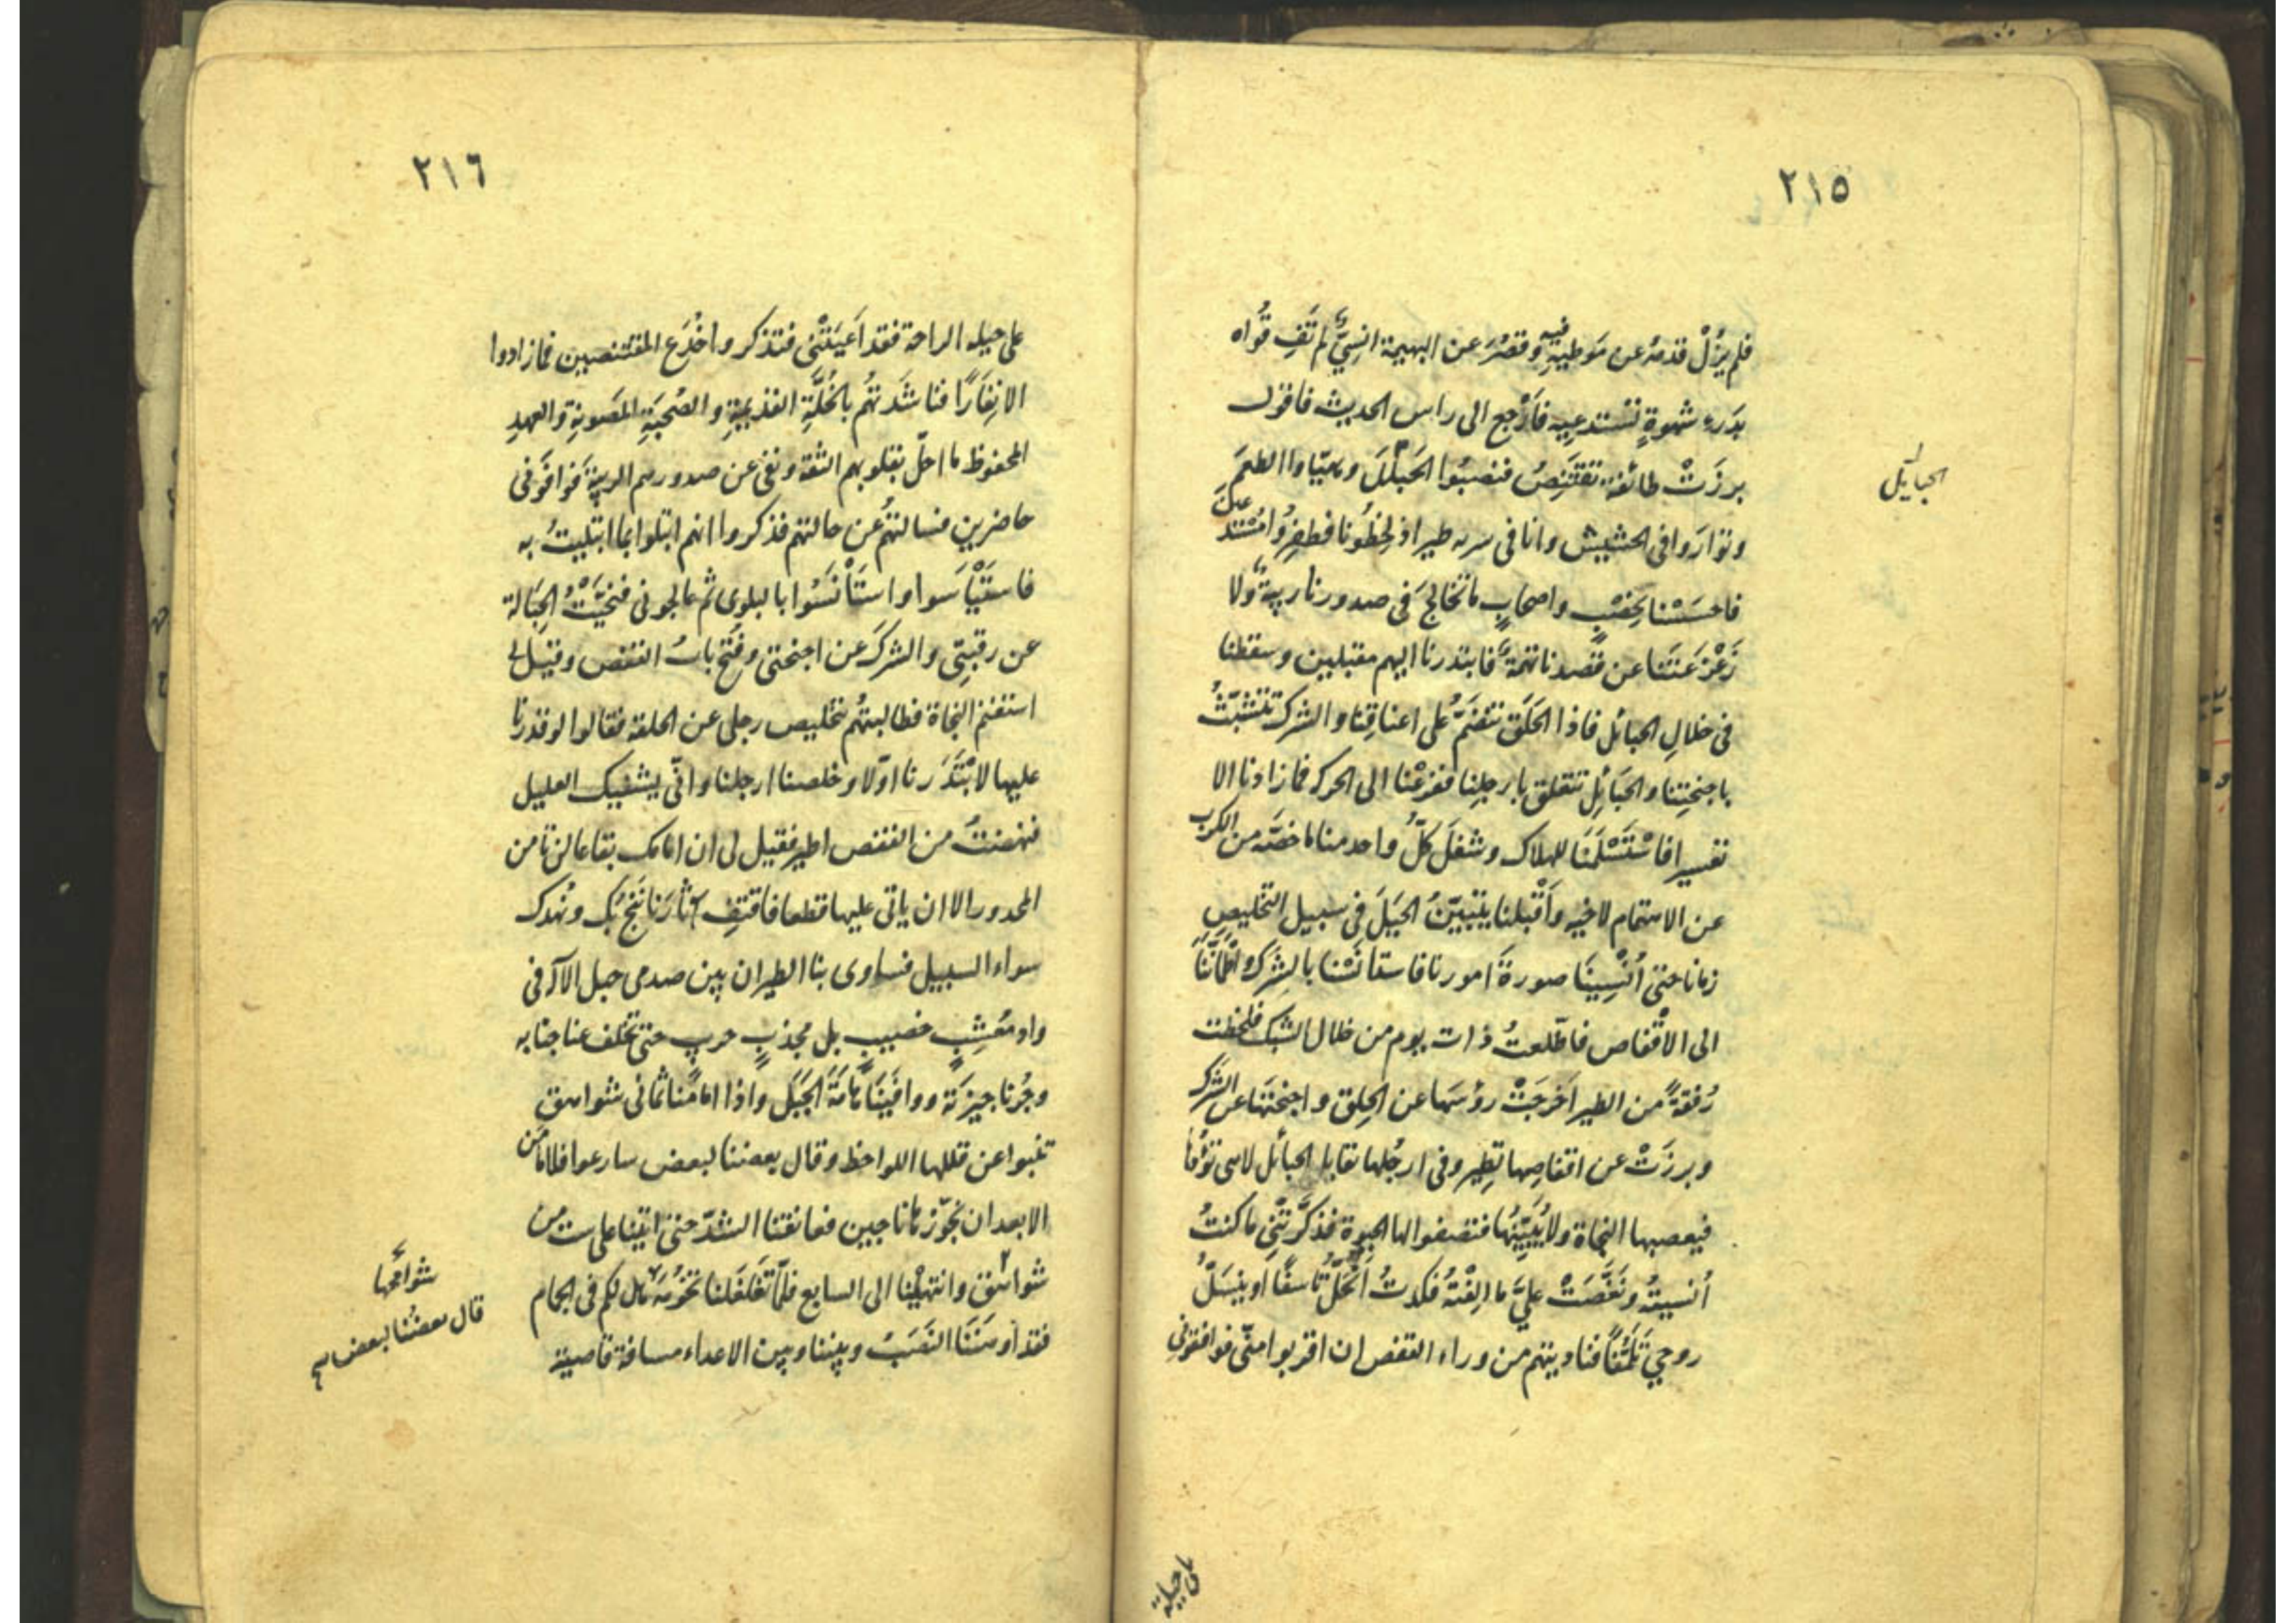 ٢١٥
فلم يزل قدمه عن موطيه فيه وقصر عن البهيمة انسي لم تف قواه
بدرء شهوة تستدعيه فارجع الى راس الحديث فاقول
برزت طائفة تقتنص فنصبوا الحبايل وهيّاوا الطعم
الحبايل
وتواروا في الحشيش وانا في سربه طير اذ لحظونا فصفروا مستدعين
فاحسسنا بخصب واصحاب ما تخالج في صدورنا ريبة ولا
زعزعتنا عن قصدنا تهمة فابتدرنا اليهم مقبلين وسقطنا
في خلال الحبائل فاذا الحلق تنضم على اعناقنا والشرك تتشبث
باجنحتنا والحبائل تتعلق بارجلنا ففزعنا الى الحركه فما زادنا الا
تعسيرا فاستسلمنا للهلاك وشغل كل واحد منا ما خصه من الكرب
عن الاهتمام لاخيه واقبلنا نتبين الحيل في سبيل التخليص
زمانا حتى أنسينا صورة امورنا فاستانسنا بالشرك واطماننا
الى الاقفاص فاطلعت ذات يوم من خلال الشبك فلحظت
رفقة من الطير اخرجت رؤسها عن الحلق واجنحتها عن الشرك
وبرزت عن اقفاصها تطير وفي ارجلها بقايا الحبائل لا هي تؤفها
فيعصبها النجاة ولا يبينها فتصفوا لها الحيوة فذكرتني ما كنت
أنسيته ونغصت علي ما الفته فكدت انحل تاسفا او ينسل
روحي تلهفا فناديتهم من وراء القفص ان اقربوا منى فوافقوني
على حيلة
٢١٦
على حيله الراحة فقد اعيتني فتذكروا خدع المقتنصين فما زادوا
الا نفارا فناشدتهم بالخلة القديمة والصحبة المصونة والعهد
المحفوظ ما احل بقلوبهم الثقة ونفى عن صدورهم الريبة فوافوني
حاضرين فسالتهم عن حالتهم فذكروا انهم ابتلوا بما ابتليت به
فاستياسوا واستانسوا بالبلوى ثم عالجوني فنحيت الحبالة
عن رقبتي والشرك عن اجنحتي وفتح باب القفص وقيل لي
استغنم النجاة فطالبتهم بتخليص رجلي عن الحلقة فقالوا لو قدرنا
عليها لابتدرنا اولا وخلصنا ارجلنا وانى يشفيك العليل
فنهضت من القفص اطير فقيل لي ان امامك بقاعا لن تامن
المحذور الا ان ياتي عليها قطعا فاقتف آثارنا ننج بك ونهدك
سواء السبيل فساوى بنا الطيران بين صدفي جبل الآله في
واد معشب خصيب بل مجذب حريب حتى تخلف عنا جنابه
وجزنا جيزته ووافينا هامة الجبل واذا امامنا ثماني شواهق
تنبوا عن قللها اللواحظ وقال بعضنا لبعض سارعوا فلا مامن
الا بعد ان نجوزها ناجين فعانقنا الشد حتى اتينا على ست من
شواهق وانتهينا الى السابع فلما تغلغلنا تخومه هل لكم في الجمام
شوامخها
قال بعضنا لبعض
فقد اوهننا النصب وبيننا وبين الاعداء مسافة قاصية